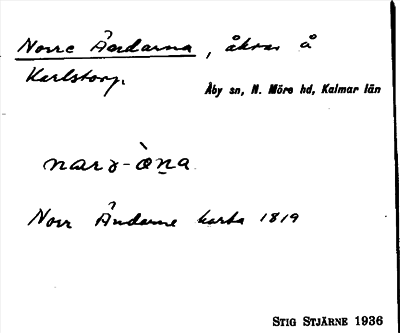 Norre Ändarna, åkrar å
Karlstorp.
Åby sn, N. Möre hd, Kalmar län
narɤ-òna
Norr Ändarne karta 1819
STIG STJÄRNE 1936